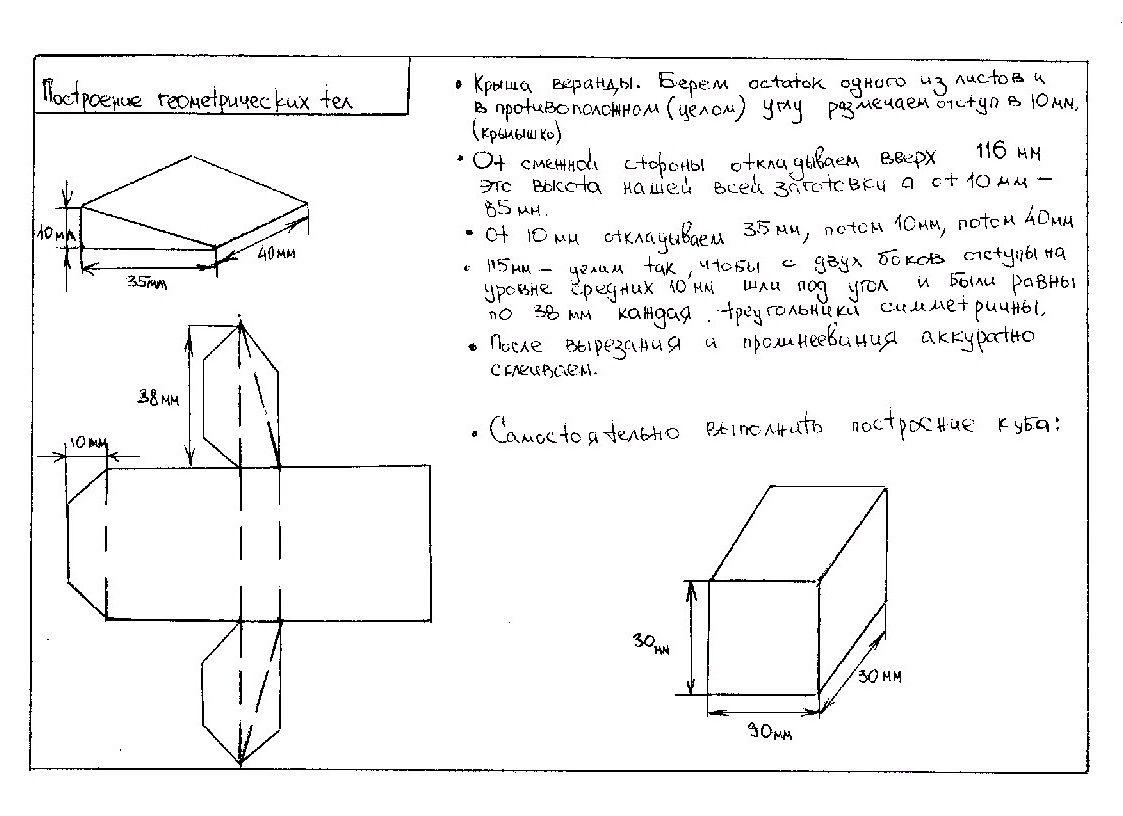 Построение геометрических тел
• Крыша веранды. Берем остаток одного из листов и
в противоположном (целом) углу размечаем отступ в 10мм.
(крылышко)
• От смежной стороны откладываем вверх 116 мм
это высота нашей всей заготовки а от 10 мм –
85 мм.
• от 10 мм откладываем 35 мм, потом 10мм, потом 40мм
• 115мм – делим так, чтобы с двух боков отступы на
уровне средних 10 мм шли под угол и были равны
по 38 мм каждая. треугольники симетричны.
• После вырезания и промнеевиния аккуратно
склеиваем.
• Самостоятельно выполнить построение куба:
10мм
40мм
35мм
38мм
10мм
30мм
30мм
90мм